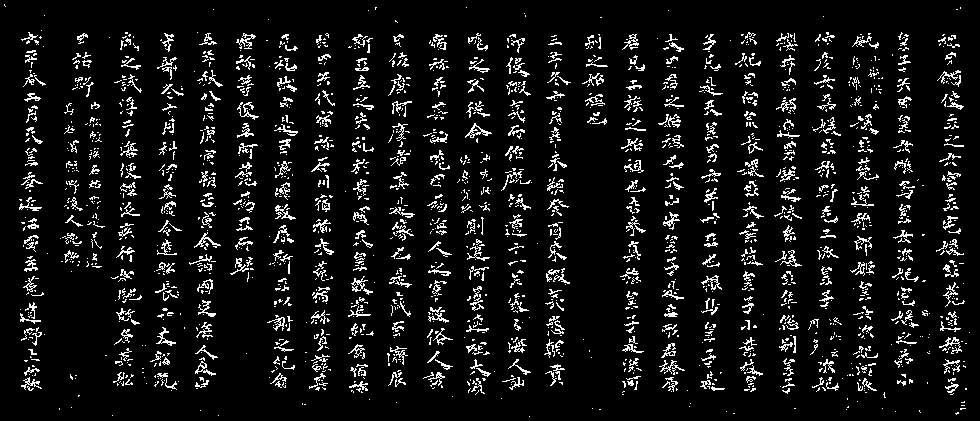 祖日觸使主之女宮主宅媛生菟道稚郎子
皇子矢田皇女雌鳥皇女次妃宅媛之弟小
甂小甂此云烏儺謎媛生菟道稚郎姫皇女次妃河派
仲彦女弟媛生稚野毛二派皇子派此云摩多次妃
櫻井田部連男鉏之妹糸媛生隼總別皇子
次妃日向泉長媛生大葉枝皇子小葉枝皇
子凡是天皇男女并廿王也根鳥皇子是
大田君之始祖也大山守皇子是土形君榛原
君凡二族之始祖也去來真稚皇子是深河
別之始祖也
三年冬十月辛未朔癸酉東蝦夷悉朝貢
即役蝦夷而作厩坂道十一月處々海人訕
哤之不從命訕哤此云佐麼賣玖則遣阿曇連祖大濱
宿祢平其訕哤因為海人之宰故俗人諺
曰佐麼阿摩者其是緣也是歲百濟辰
斯王立之失礼於貴國天皇故遣紀角宿祢
羽田矢代宿祢石川宿祢木菟宿祢嘖讓其
无礼狀由是百濟國殺辰斯王以謝之紀角
宿祢等便立阿花為王而歸
五年秋八月庚寅朔壬寅令諸國定海人及山
守部冬十月科伊豆國令造船長十丈船既
成之試浮于海便輕泛疾行如馳故名其船
曰枯野由船輕疾名枯野是義違焉若謂輕野後人訛歟
六年春二月天皇幸近江國至菟道野上而歌